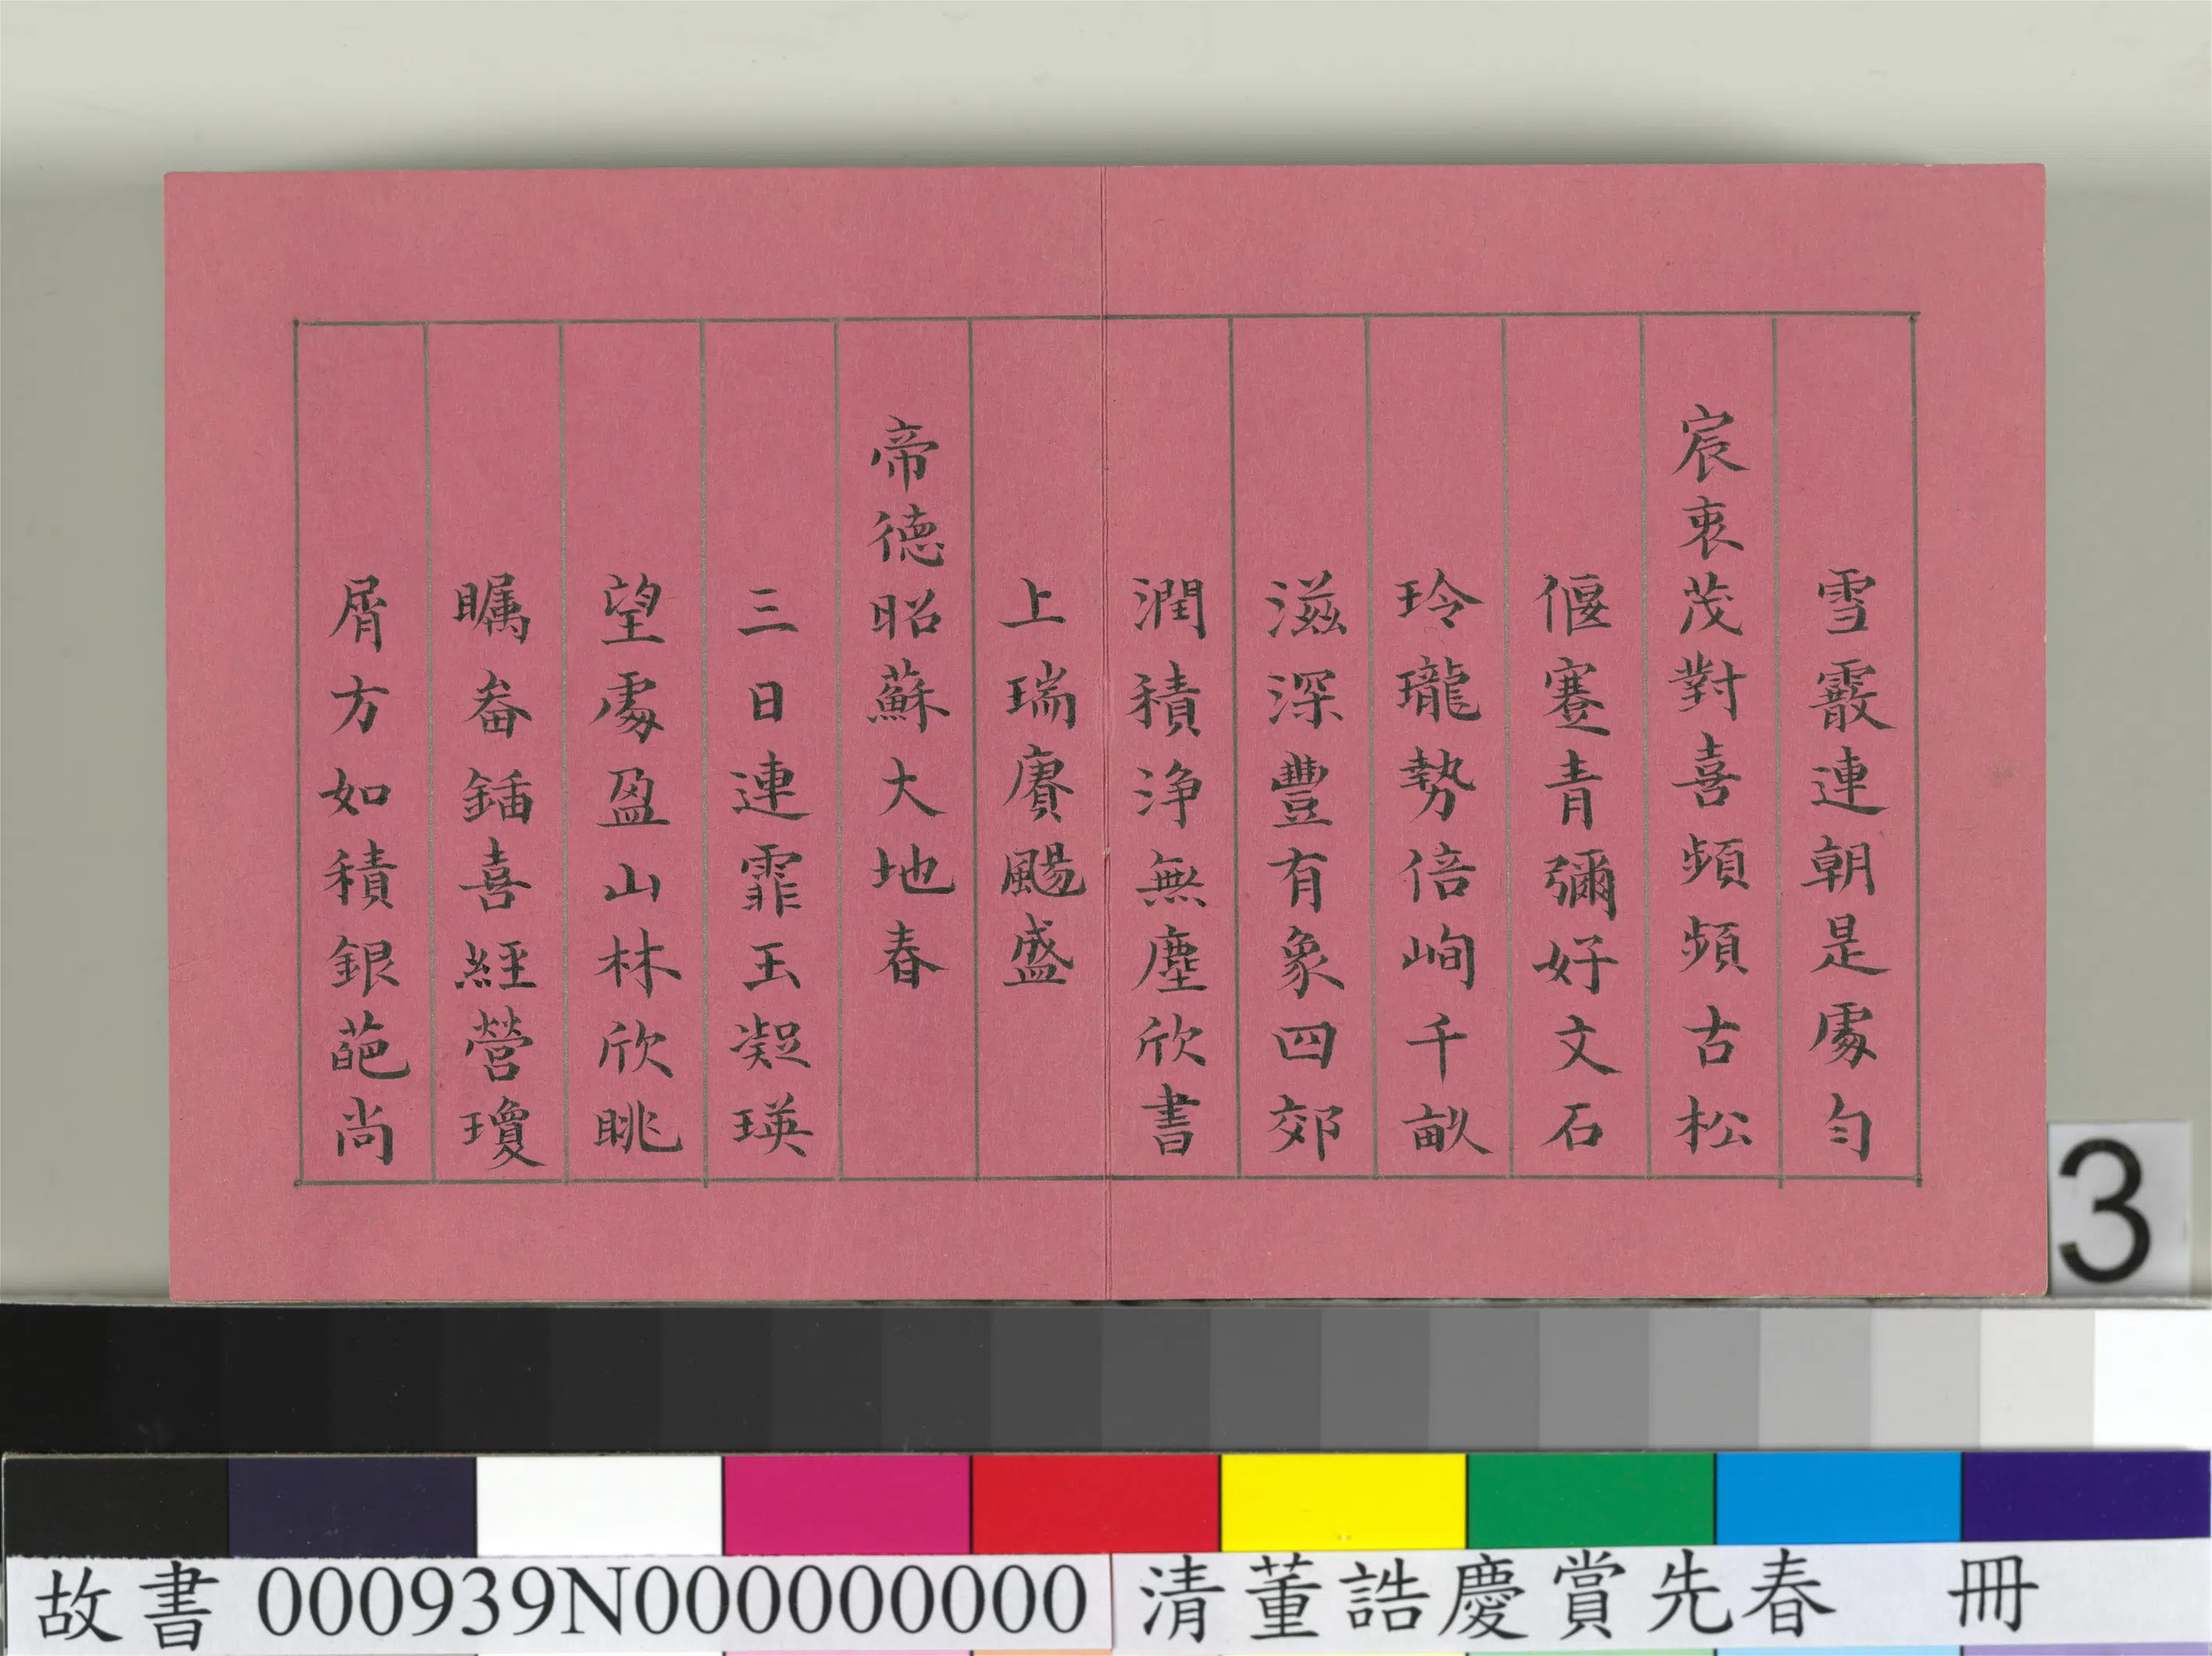 雪霰連朝是處勻
宸衷茂對喜頻頻古松
偃蹇青彌好文石
玲瓏勢倍峋千畝
滋深豐有象四郊
潤積淨無塵欣書
上瑞賡颺盛
帝德昭蘇大地春
三日連霏玉凝瑛
望處盈山林欣眺
矚畚鍤喜經營瓊
屑方如積銀葩尚
3
故書 000939N000000000 清董誥慶賞先春 冊